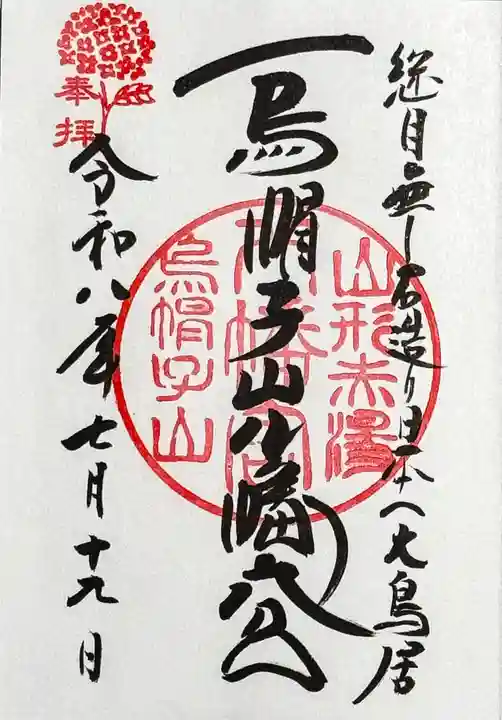 継目無し石造り日本一大鳥居
烏帽子山八幡宮
山形赤湯
八幡宮
烏帽子山
奉拝
令和八年七月十九日